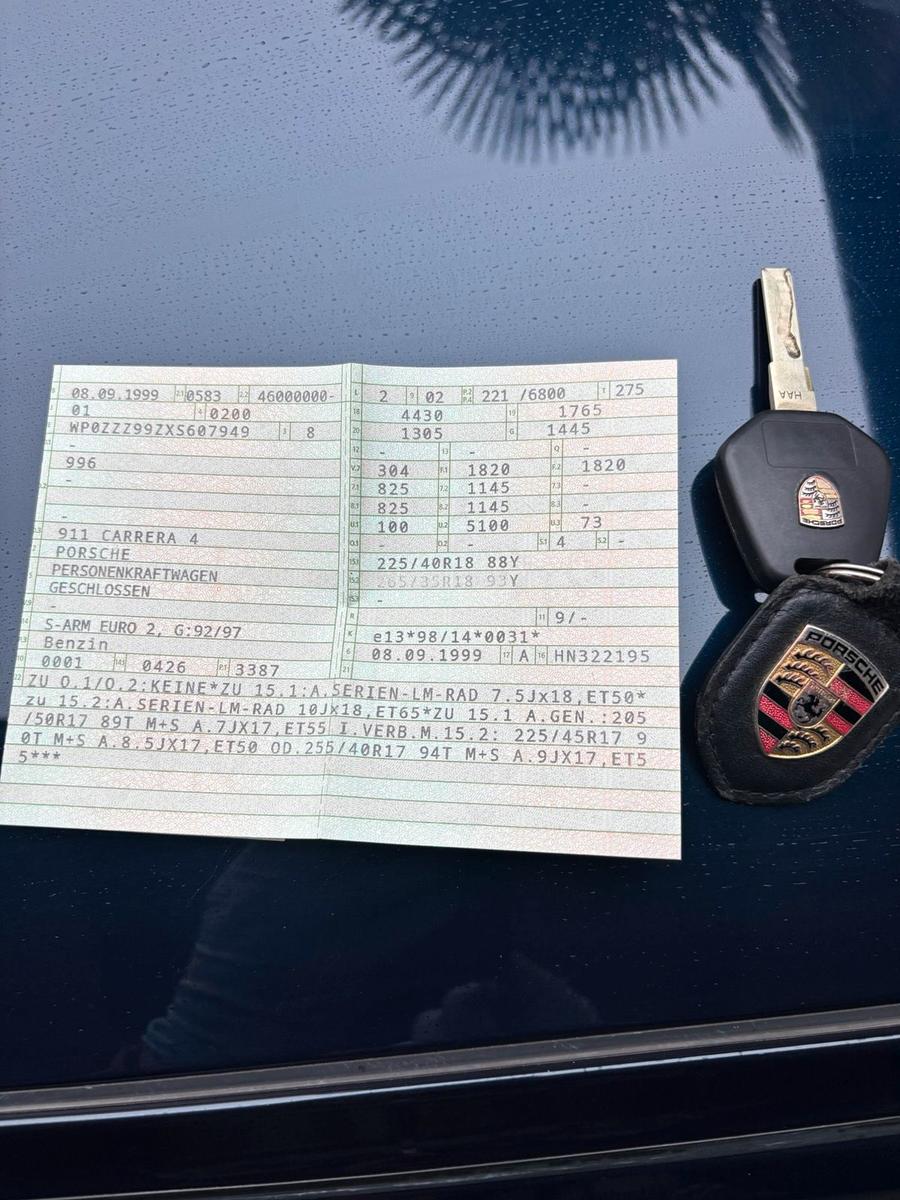 08.09.1999 2.1 0583 2.2 46000000-
01 4 0200
WP0ZZZ99ZXS607949 3 8
-
996
-
-
911 CARRERA 4
PORSCHE
PERSONENKRAFTWAGEN
GESCHLOSSEN
-
S-ARM EURO 2, G:92/97
Benzin
0001 14.1 0426 P.1 3387
L 2 9 02 P.2 P.4 221 /6800 T 275
18 4430 19 1765
20 1305 G 1445
12 - 13 - Q -
V.7 304 F.1 1820 F.2 1820
7.1 825 7.2 1145 7.3 -
8.1 825 8.2 1145 8.3 -
U.1 100 U.2 5100 U.3 73
O.1 - O.2 - S.1 4 S.2 -
15.1 225/40R18 88Y
15.2 265/35R18 93Y
15.3 -
R 11 9/-
K e13*98/14*0031*
6 08.09.1999 17 A 16 HN322195
21
22 ZU O.1/O.2:KEINE*ZU 15.1:A.SERIEN-LM-RAD 7.5Jx18,ET50*
zu 15.2:A.SERIEN-LM-RAD 10Jx18,ET65*ZU 15.1 A.GEN.:205
/50R17 89T M+S A.7JX17,ET55 I.VERB.M.15.2: 225/45R17 9
0T M+S A.8.5JX17,ET50 OD.255/40R17 94T M+S A.9JX17,ET5
5***
HAA
PORSCHE
PORSCHE